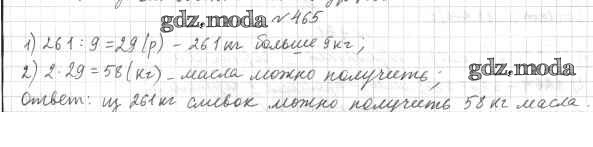 gdz.moda № 465
1) 261 : 9 = 29 (р) – 261 кг больше 9 кг;
2) 2 · 29 = 58 (кг) – масла можно получить; gdz.moda
Ответ: из 261 кг сливок можно получить 58 кг масла.